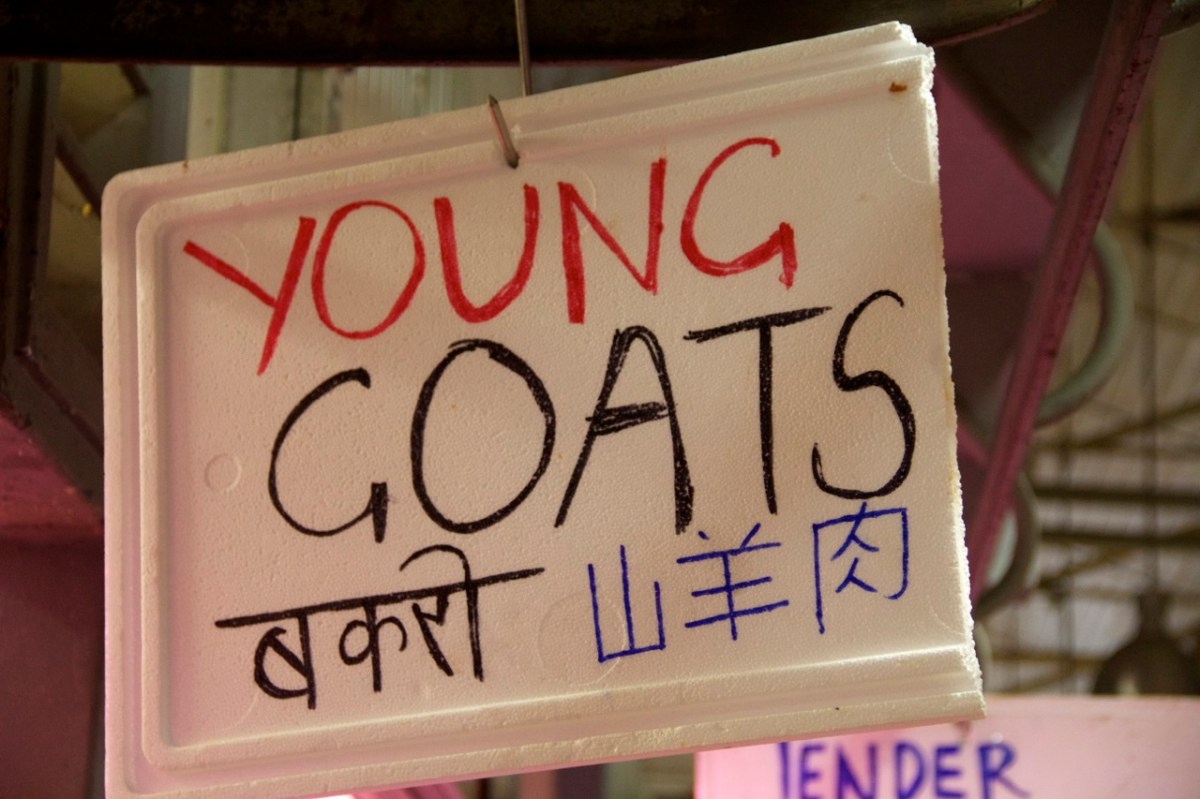 YOUNG
GOATS
बकरी 山羊肉
TENDER